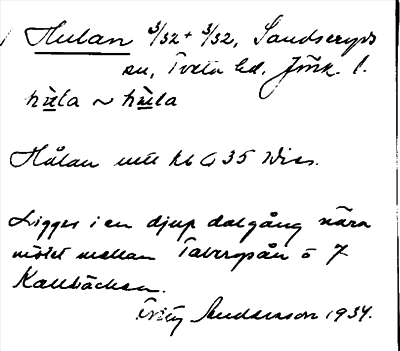 Hulan 3/32 + 3/32, Sandseryds
sn, Tveta hd. Jönk. l.
hu̳la ~ hu̳la
Hålan
Ligger i en djup dalgång nära
mötet mellan Tabergsån o
Kallbäcken.
Andersson 1934.